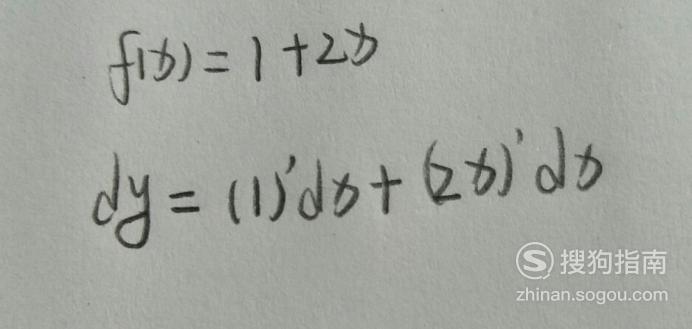 f(x) = 1 + 2x
dy = (1)'dx + (2x)'dx
S 搜狗指南
zhinan.sogou.com